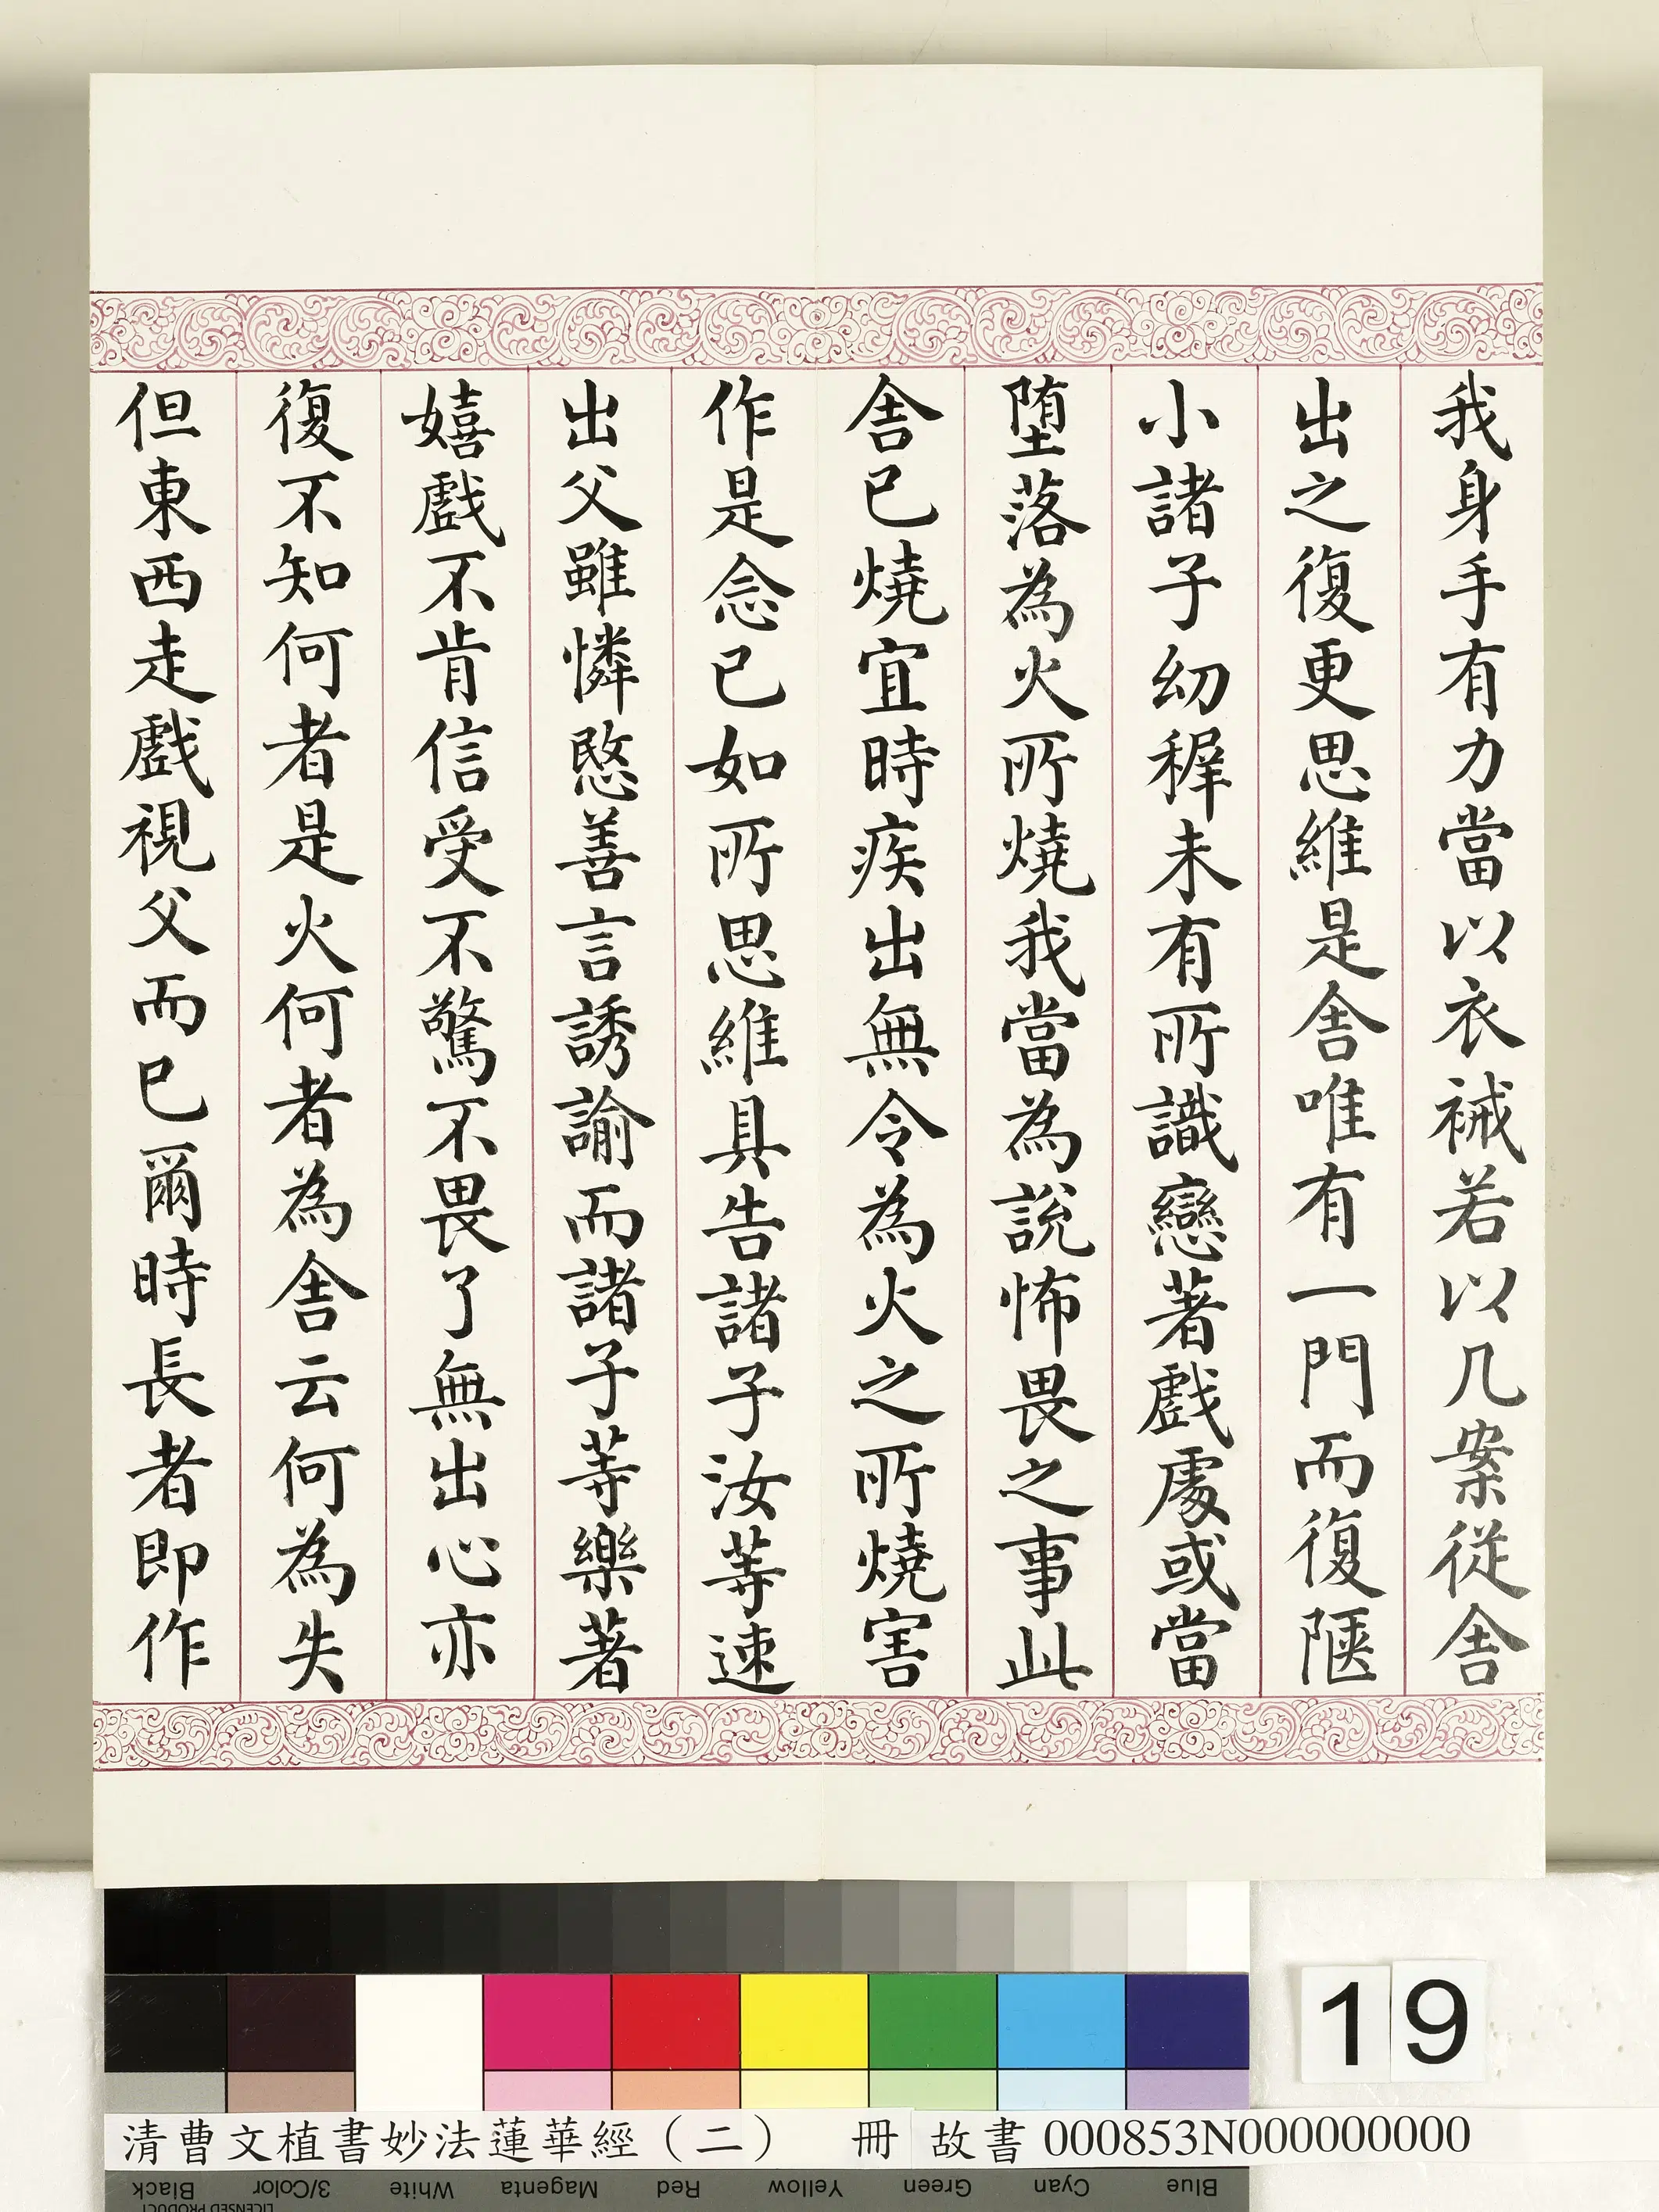 我身手有力當以衣裓若以几案從舍
出之復更思維是舍唯有一門而復陿
小諸子幼稺未有所識戀著戲處或當
堕落為火所燒我當為說怖畏之事此
舍已燒宜時疾出無令為火之所燒害
作是念已如所思維具告諸子汝等速
出父雖憐愍善言誘諭而諸子等樂著
嬉戲不肯信受不驚不畏了無出心亦
復不知何者是火何者為舍云何為失
但東西走戲視父而已爾時長者即作
19
清曹文植書妙法蓮華經（二） 冊 故書 000853N000000000
Black 3/Color White Magenta Red Yellow Green Cyan Blue
LICENSED PRODUCT